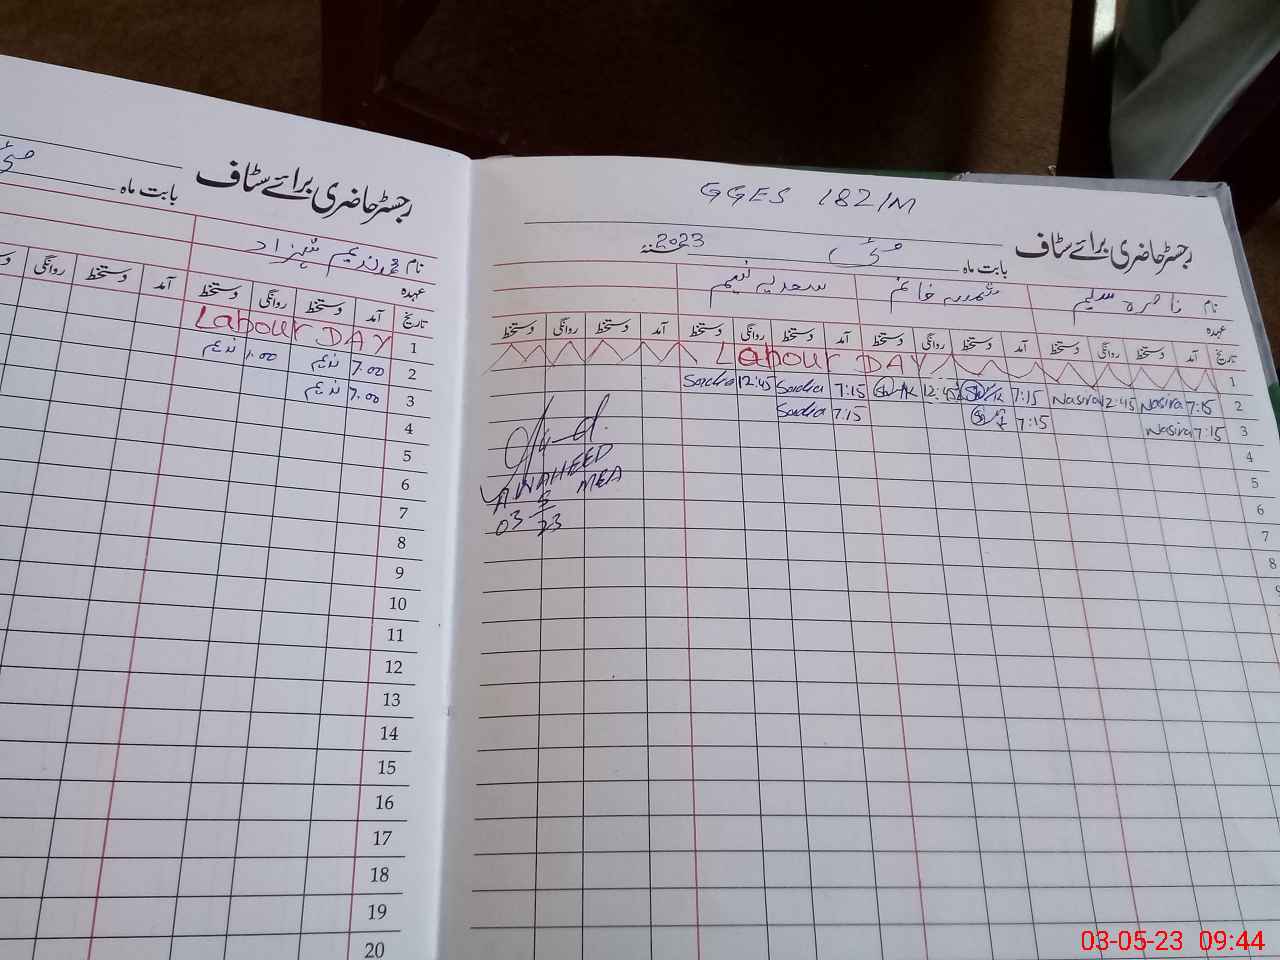 رجسٹر حاضری برائے سٹاف
بابت ماہ مئی
نام محمد ندیم شہزاد
عہدہ
تاریخ آمد دستخط روانگی دستخط آمد دستخط روانگی
1 Labour DAY
2 7.00 ندیم 1.00 ندیم
3 7.00 ندیم
4
5
6
7
8
9
10
11
12
13
14
15
16
17
18
19
20
GGES 182/M
رجسٹر حاضری برائے سٹاف
بابت ماہ مئی 2023
نام ناصرہ سلیم ثمینہ خانم سعدیہ نسیم
عہدہ
تاریخ آمد دستخط روانگی دستخط آمد دستخط روانگی دستخط آمد دستخط روانگی دستخط آمد دستخط روانگی دستخط
1 Labour DAY
2 7:15 Nasira 12:45 Nasira 7:15 12:45 7:15 Sadia 12:45 Sadia
3 7:15 Nasira 7:15 7:15 Sadia
4
5
6
7
8
A WAHEED
MEA
03 5 23
03-05-23 09:44